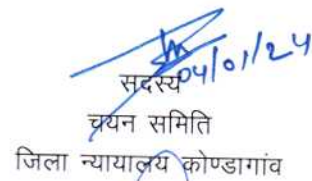 04/01/24
सदस्य
चयन समिति
जिला न्यायालय कोण्डागांव